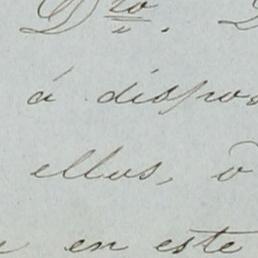 Dro.
á dispos
ellos, ó
en este